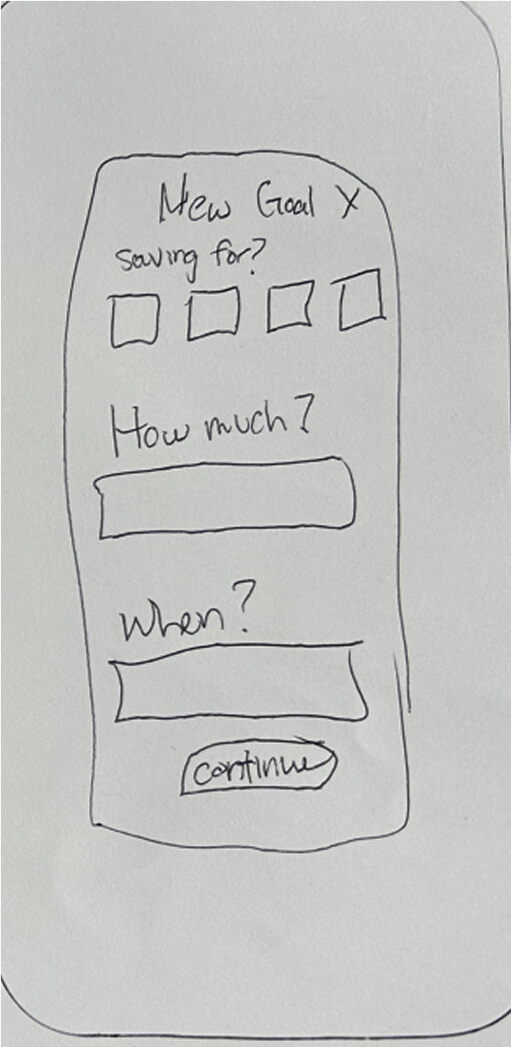 New Goal X
Saving for?
How much?
When?
continue